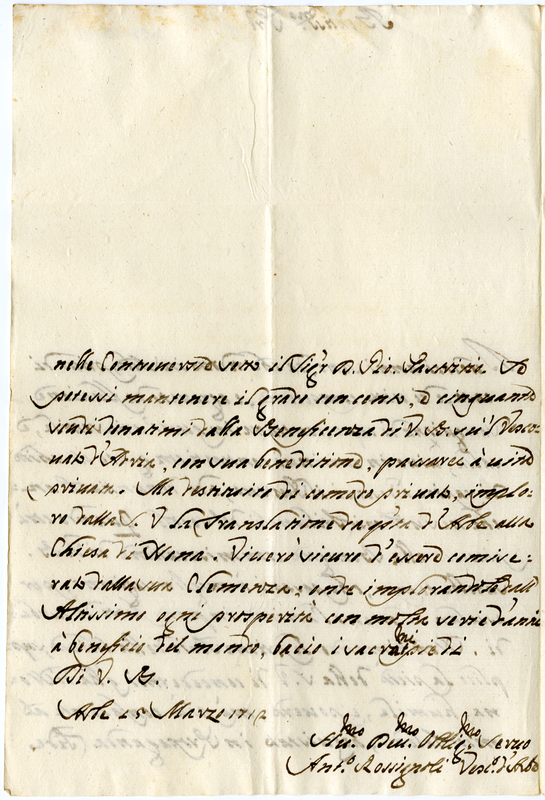 nelle Controversie sotto il Sigr D. Gio. Io
potessi mantenere il grado con cento, e cinquanta
scuti donatimi dalla Beneficenza di V. B. Vesco:
uato d'Arvia, con sua beneditione, passarei à uita
priuata. Ma destituito di comodo priuato, implo:
ro dalla S. V. la Translatione da q'sta d'Arbe alla
Chiesa di Nona. Viuerò sicuro d'essere comise:
rato dalla sua Clemenza; onde implorando dall'
Altissimo ogni prosperità con molta serie d'anni
à beneficio del mondo, bacio i sacratmi piedi
Di V. B.
Arbe 25 Marzo 1712
Hu.mo Deu.mo Oblig.mo Seruo
Ant.o Rossignoli Vesc.o d'Arbe